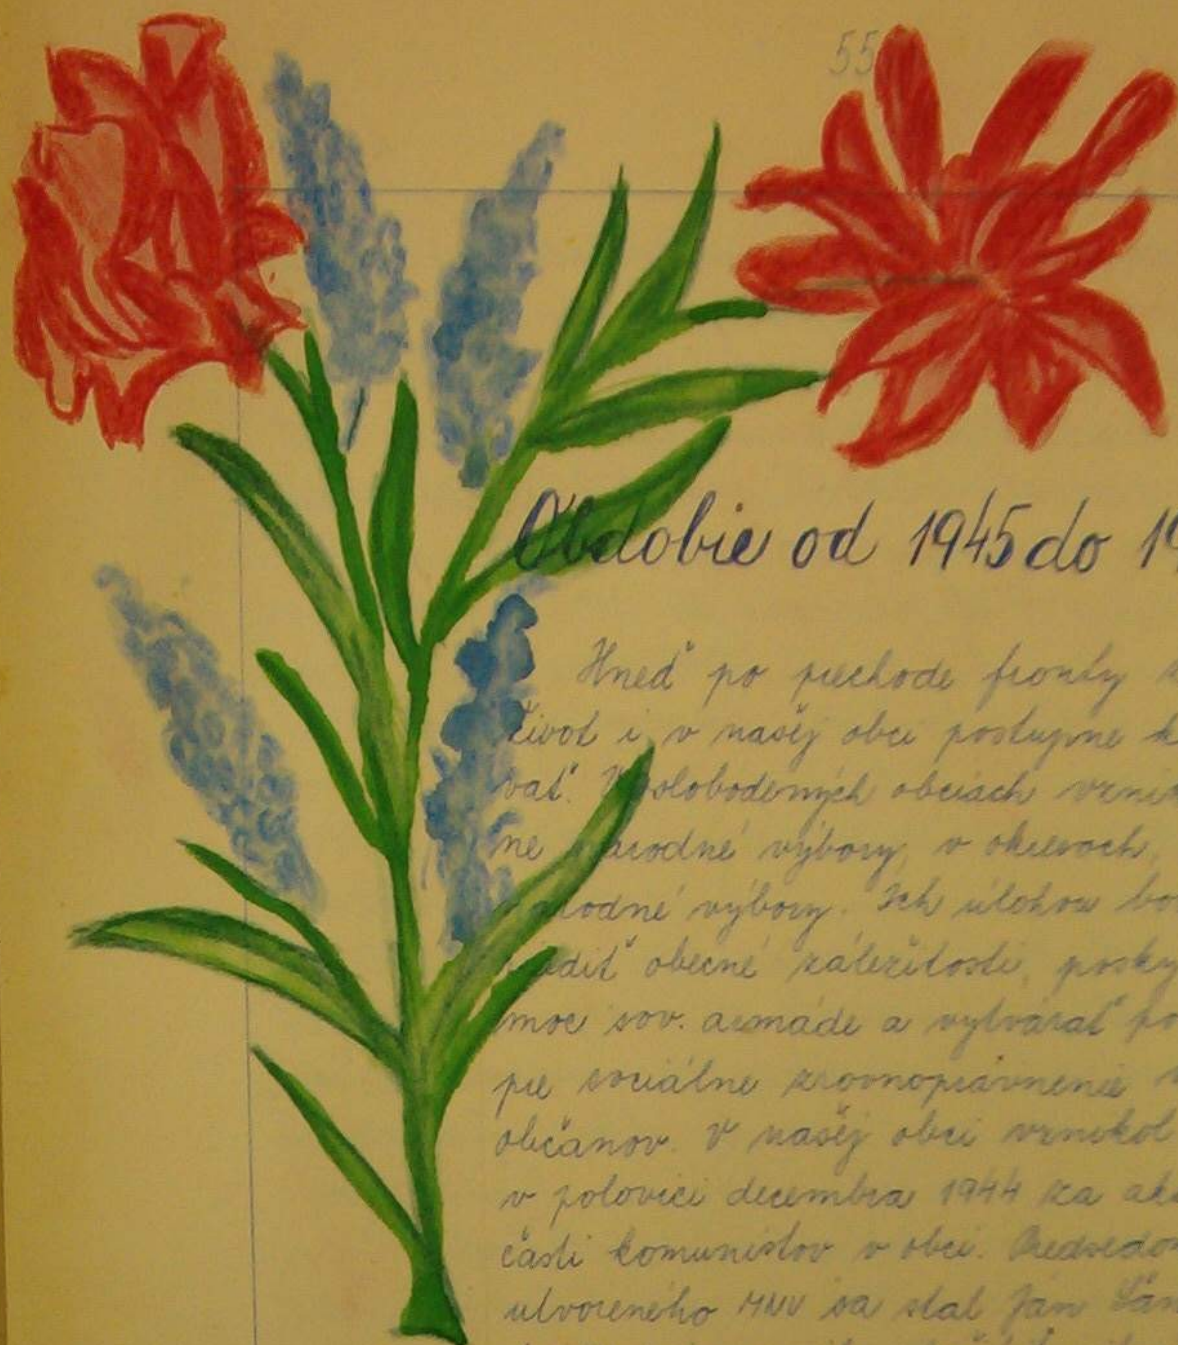 55
Obdobie od 1945 do 19
Hneď po prechode fronty
život i v našej obci postupne
vať. V oslobodených obciach vzni
ne národné výbory, v okresoch,
národné výbory. Ich úlohou bo
riadiť obecné záležitosti, posky
moc sov. armáde a vytvárať po
pre sociálne zrovnoprávnenie
občanov. V našej obci vznikol
v polovici decembra 1944 za ak
časti komunistov v obci. Predsedo
utvoreného MNV sa stal Ján